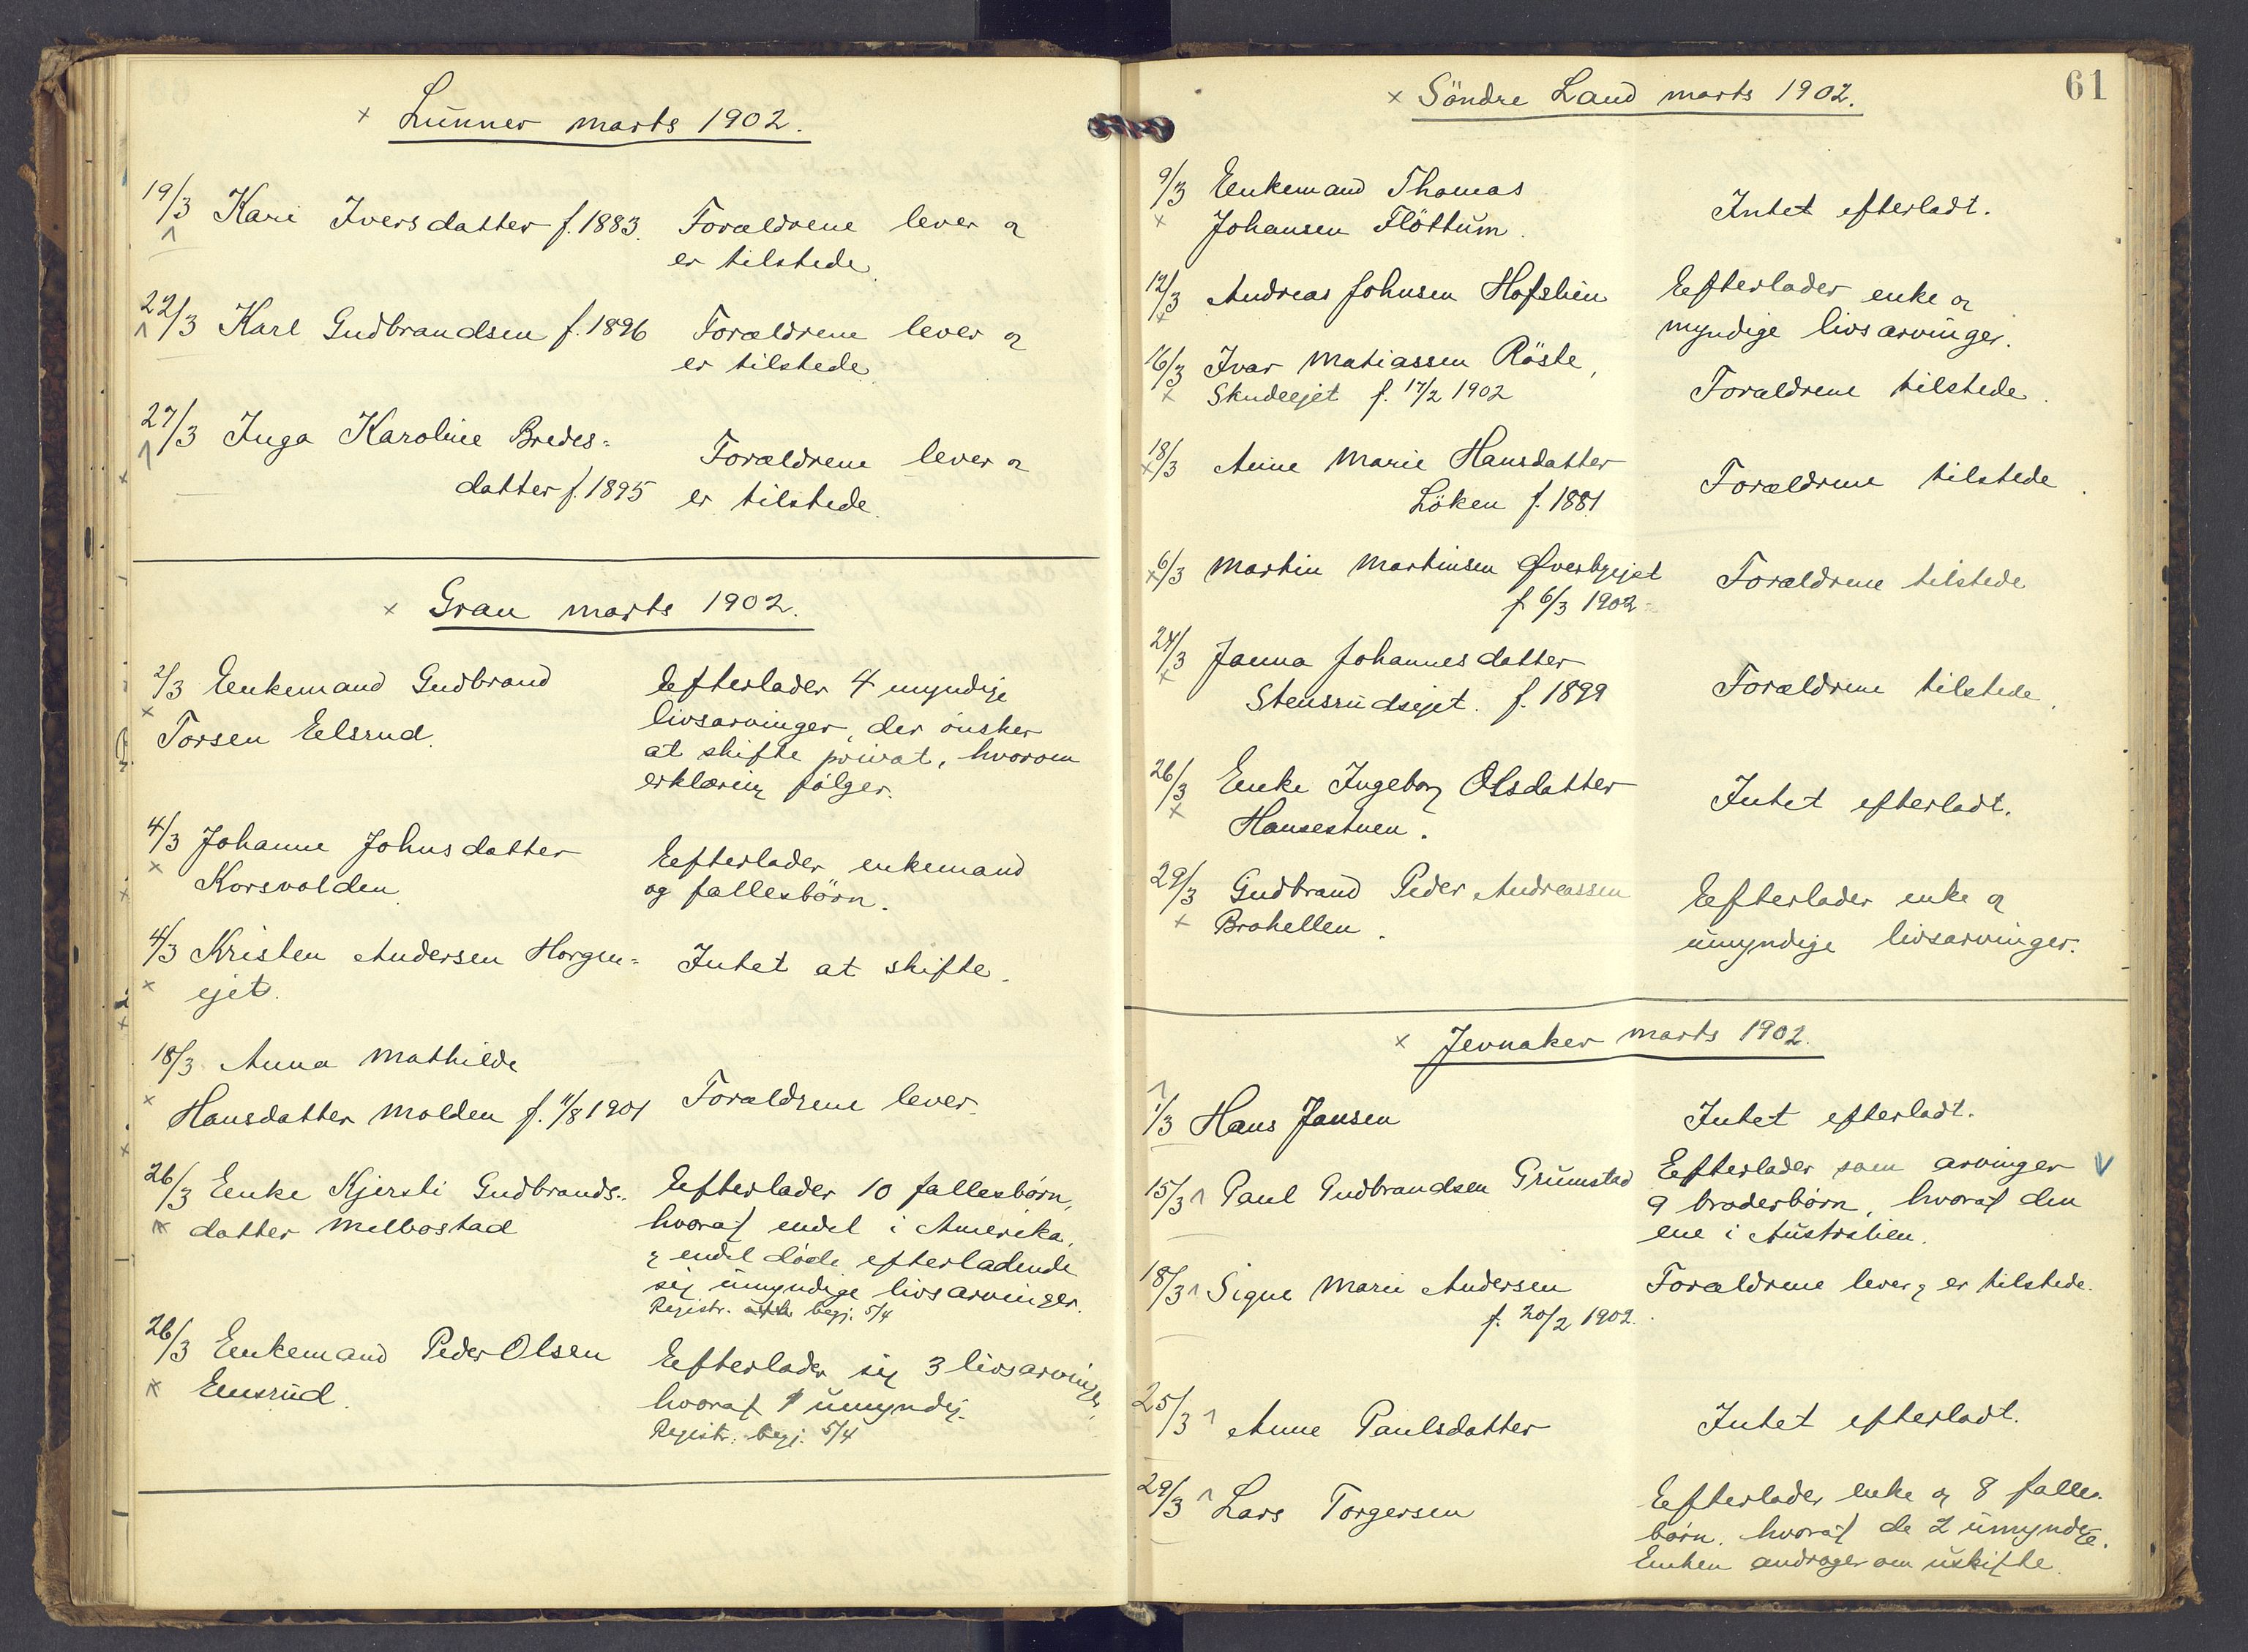 Lunner marts 1902.
19/3 Kari Iversdatter f. 1883. Forældrene lever og
er tilstede.
22/3 Karl Gudbrandsen f. 1896 Forældrene lever og
er tilstede.
27/3 Inga Karoline Bredes=
datter f. 1895
Forældrene lever og
er tilstede.
Gran marts 1902.
2/3 Enkemand Gudbrand
Torsen Elsrud.
Efterlader 4 myndige
livsarvinger, der ønsker
at skifte privat, hvorom
erklæring følger.
4/3 Johanne Johnsdatter
Korsvolden.
Efterlader enkemand
og fællesbörn.
4/3 Kristen Andersen Horgen=
ejet.
Intet at skifte.
18/3 Anna Mathilde
Hansdatter Molden f. 11/8 1901
Forældrene lever.
26/3 Enke Kjersti Gudbrands=
datter Melbostad
Efterlader 10 fællesbörn,
hvoraf endel i Amerika,
og endel døde efterladende
sig umyndige livsarvinger.
Registr. begj. 5/4
26/3 Enkemand Peder Olsen
Emsrud.
Efterlader sig 3 livsarvinger,
hvoraf 1 umyndig.
Registr. begj. 5/4
61
Söndre Land marts 1902.
9/3 Enkemand Thomas
Johansen Flöttum.
Intet efterladt.
12/3 Andreas Johnsen Hofslien
Efterlader enke og
myndige livsarvinger.
16/3 Ivar Matiassen Röste,
Skudeejet f. 17/2 1902
Forældrene tilstede.
18/3 Anne Marie Hansdatter
Löken f. 1881
Forældrene tilstede.
6/3 Martin Martinsen Øverbyejet
f. 6/3 1902
Forældrene tilstede
24/3 Janna Johannesdatter
Stensrudsejet. f. 1899
Forældrene tilstede.
26/3 Enke Ingeborg Olsdatter
Hansestuen.
Intet efterladt.
29/3 Gudbrand Peder Andreassen
Brohellen.
Efterlader enke og
umyndige livsarvinger.
Jevnaker marts 1902.
1/3 Hans Jansen
Intet efterladt.
15/3 Paul Gudbrandsen Grumstad
Efterlader som arvinger
9 broderbörn, hvoraf den
ene i Australien.
18/3 Signe Marie Andersen
f. 20/2 1902.
Forældrene lever og er tilstede.
25/3 Anne Paulsdatter
Intet efterladt.
29/3 Lars Torgersen
Efterlader enke og 8 fælles
børn. hvoraf de 2 umyndige.
Enken andrager om uskifte.